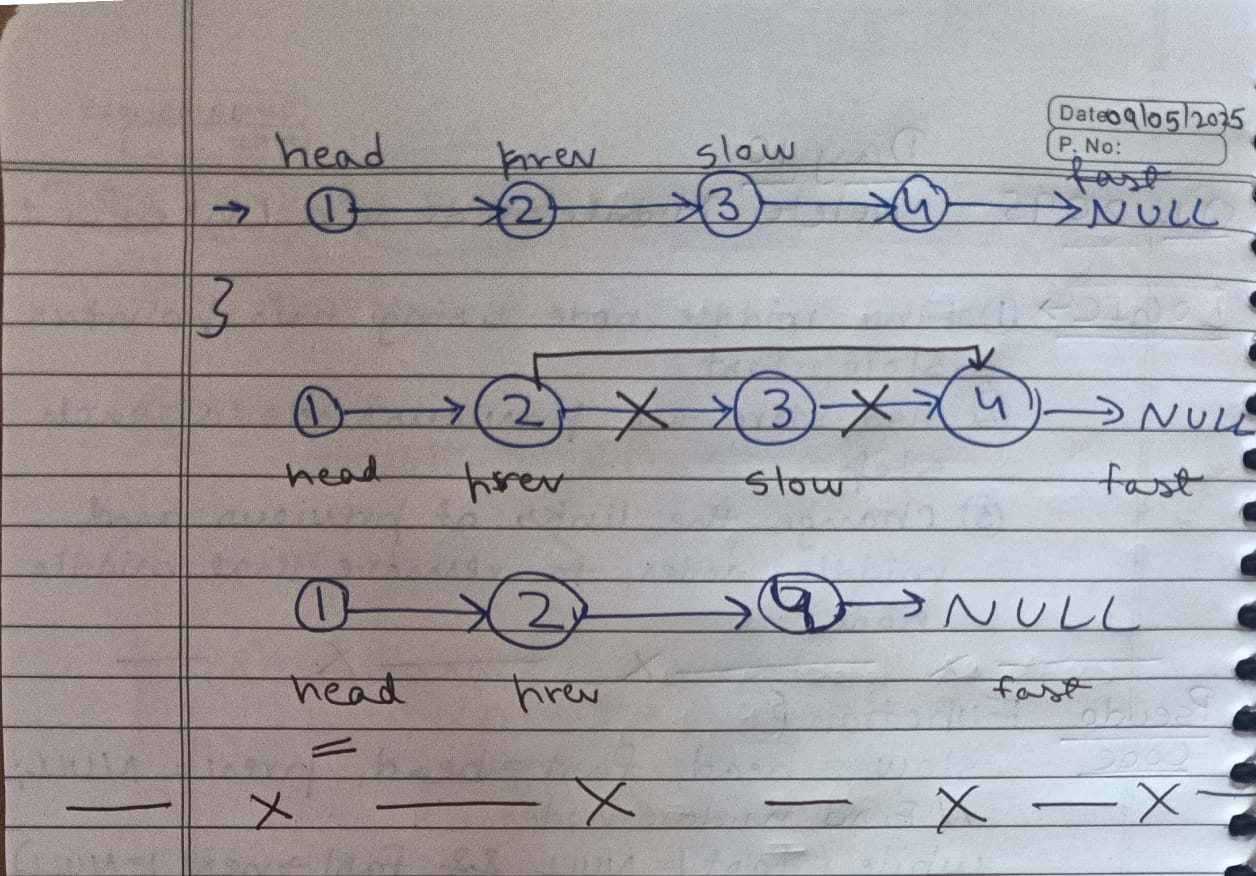 Date 09/05/2025
P. No:
head prev slow fast
→ 1 → 2 → 3 → 4 → NULL
}
1 → 2 → 3 → 4 → NULL
head prev slow fast
1 → 2 → 4 → NULL
head prev fast
=
— X — X — X — X —